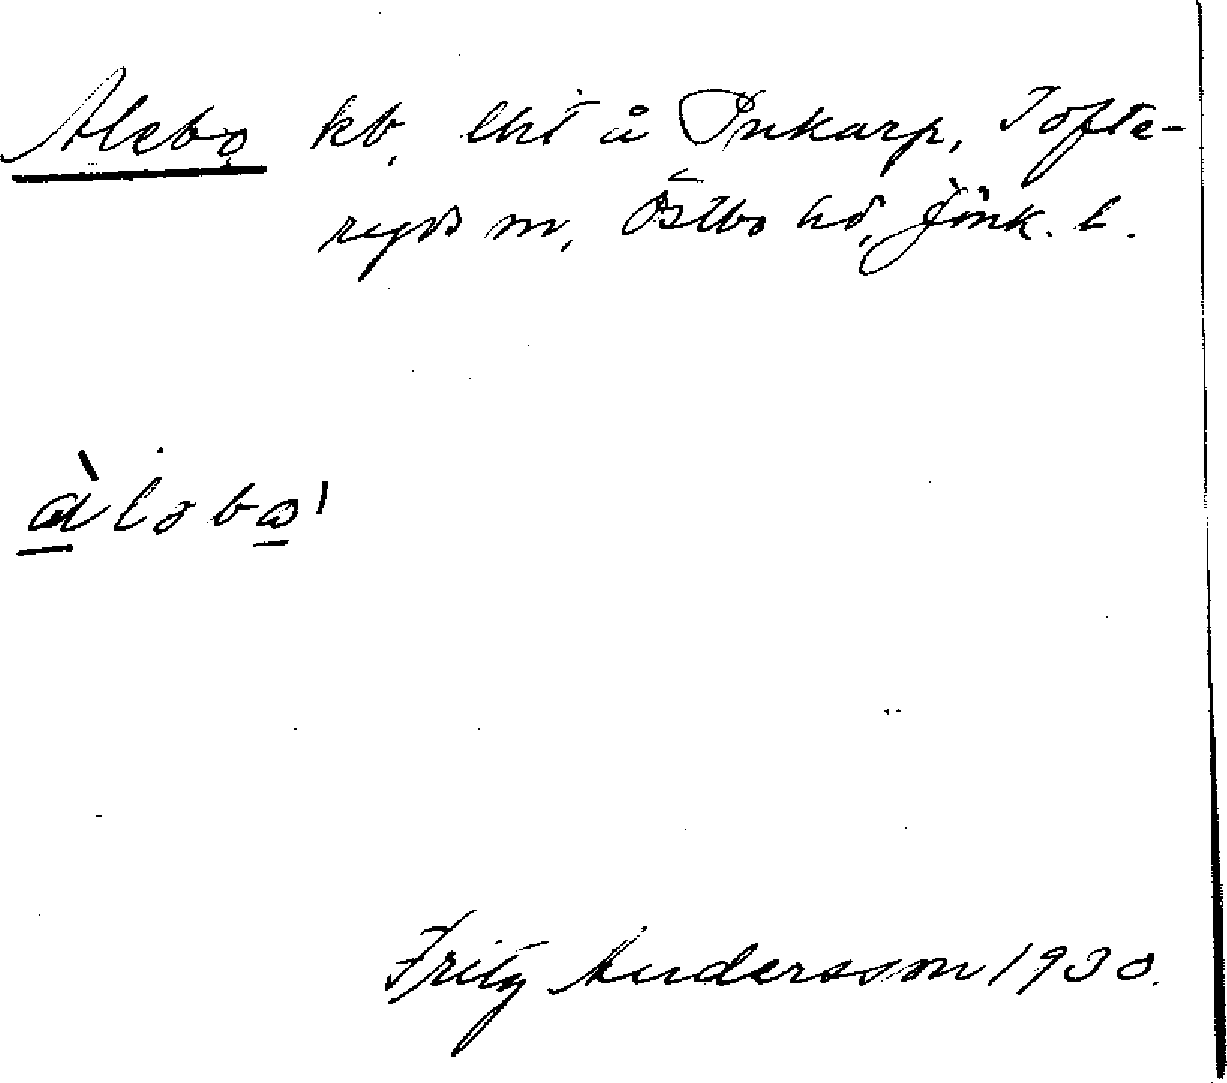 Alebo kb, lht å Pukarp, Tofte-
ryds sn, Östbo hd, Jönk. l.
àləbo'
Fritz Andersson 1930.